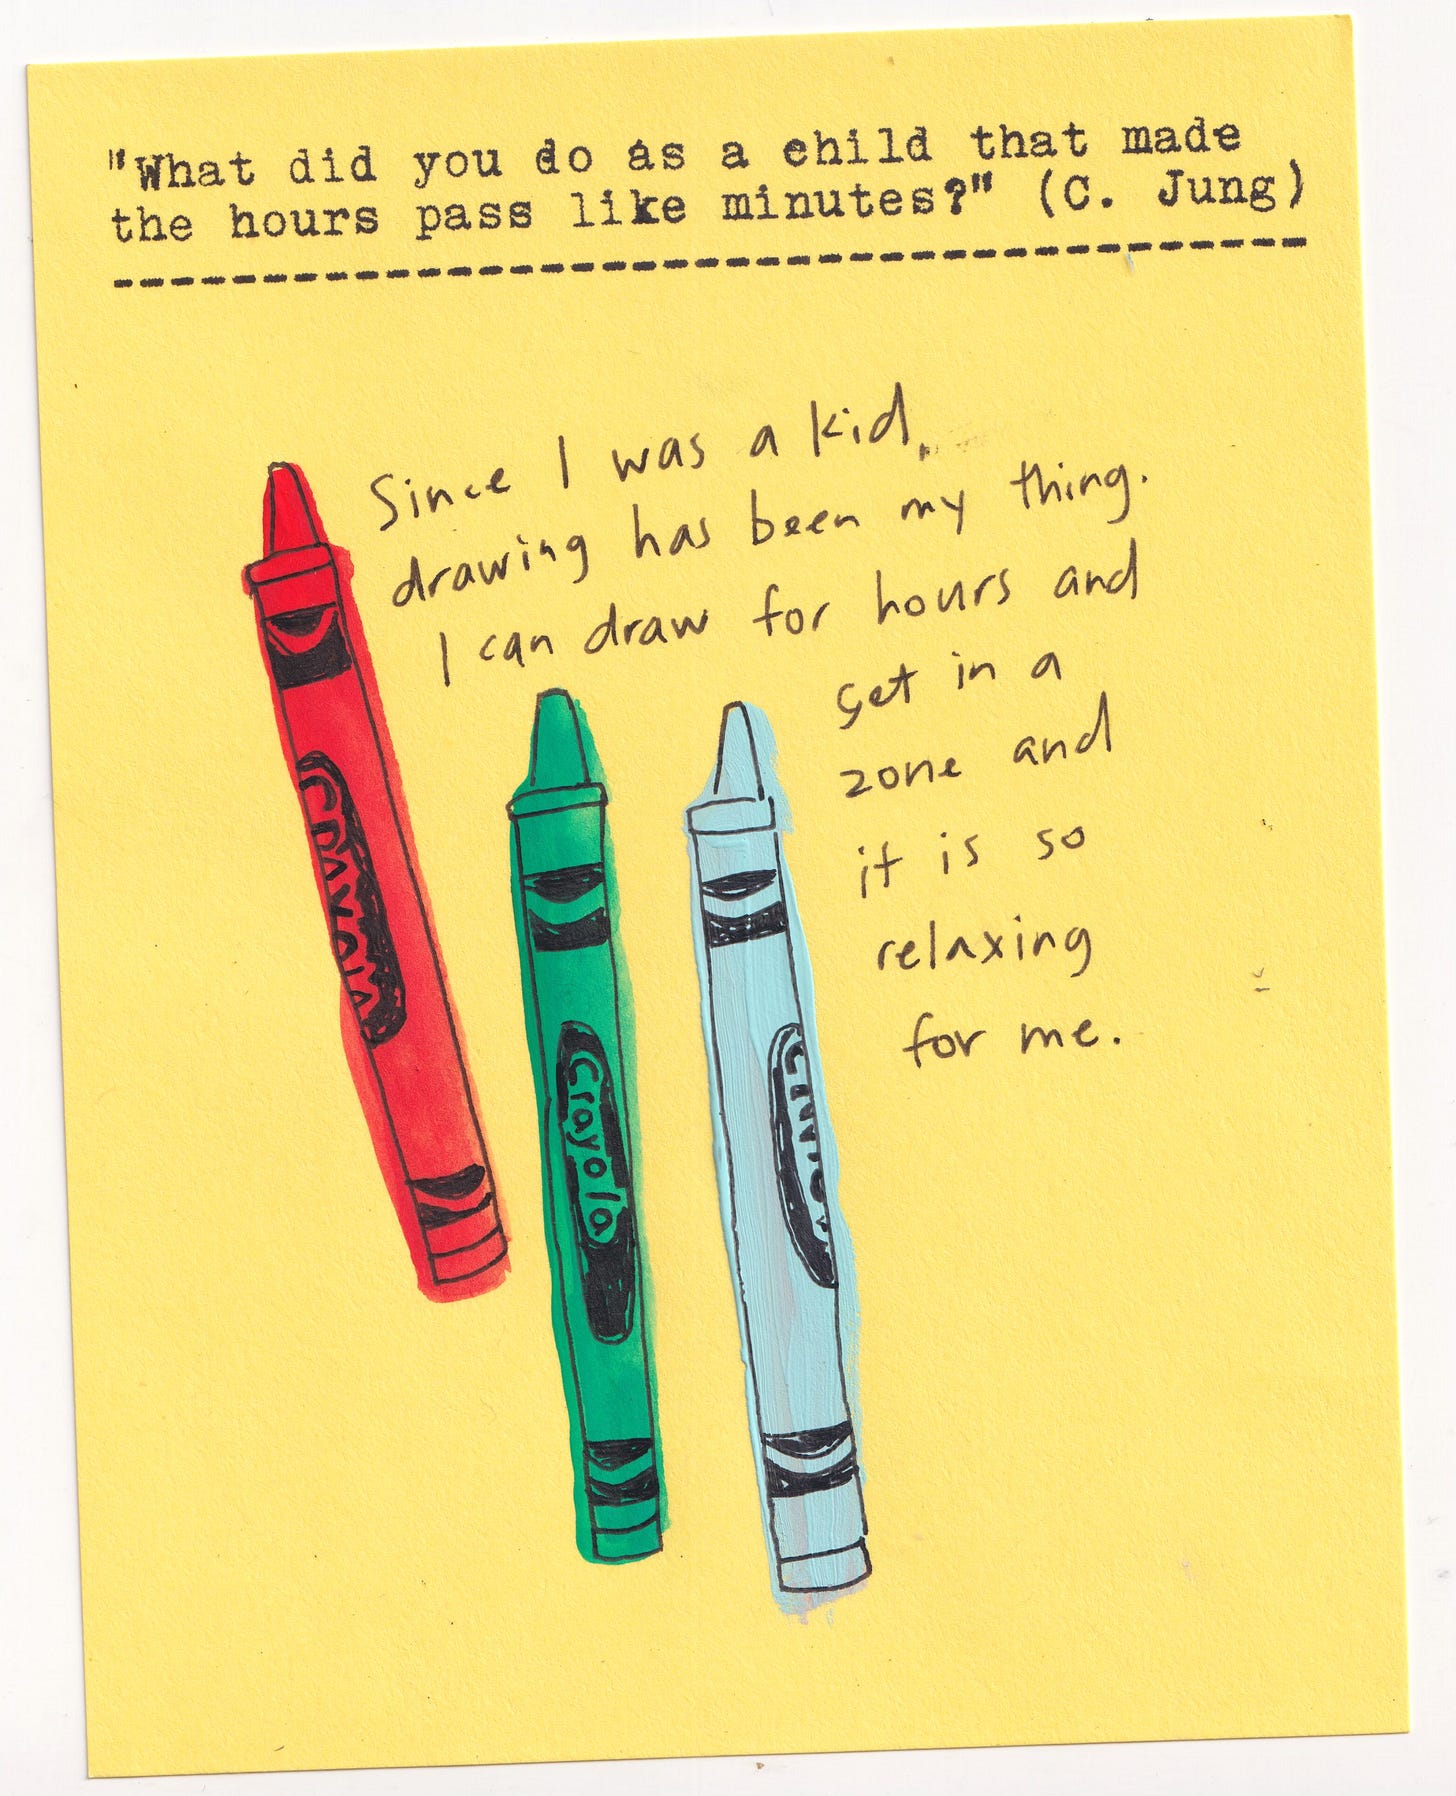 "What did you do as a child that made
the hours pass like minutes?" (C. Jung)
Since I was a kid,
drawing has been my thing.
I can draw for hours and
get in a
zone and
it is so
relaxing
for me.
CRAYOLA
Crayola